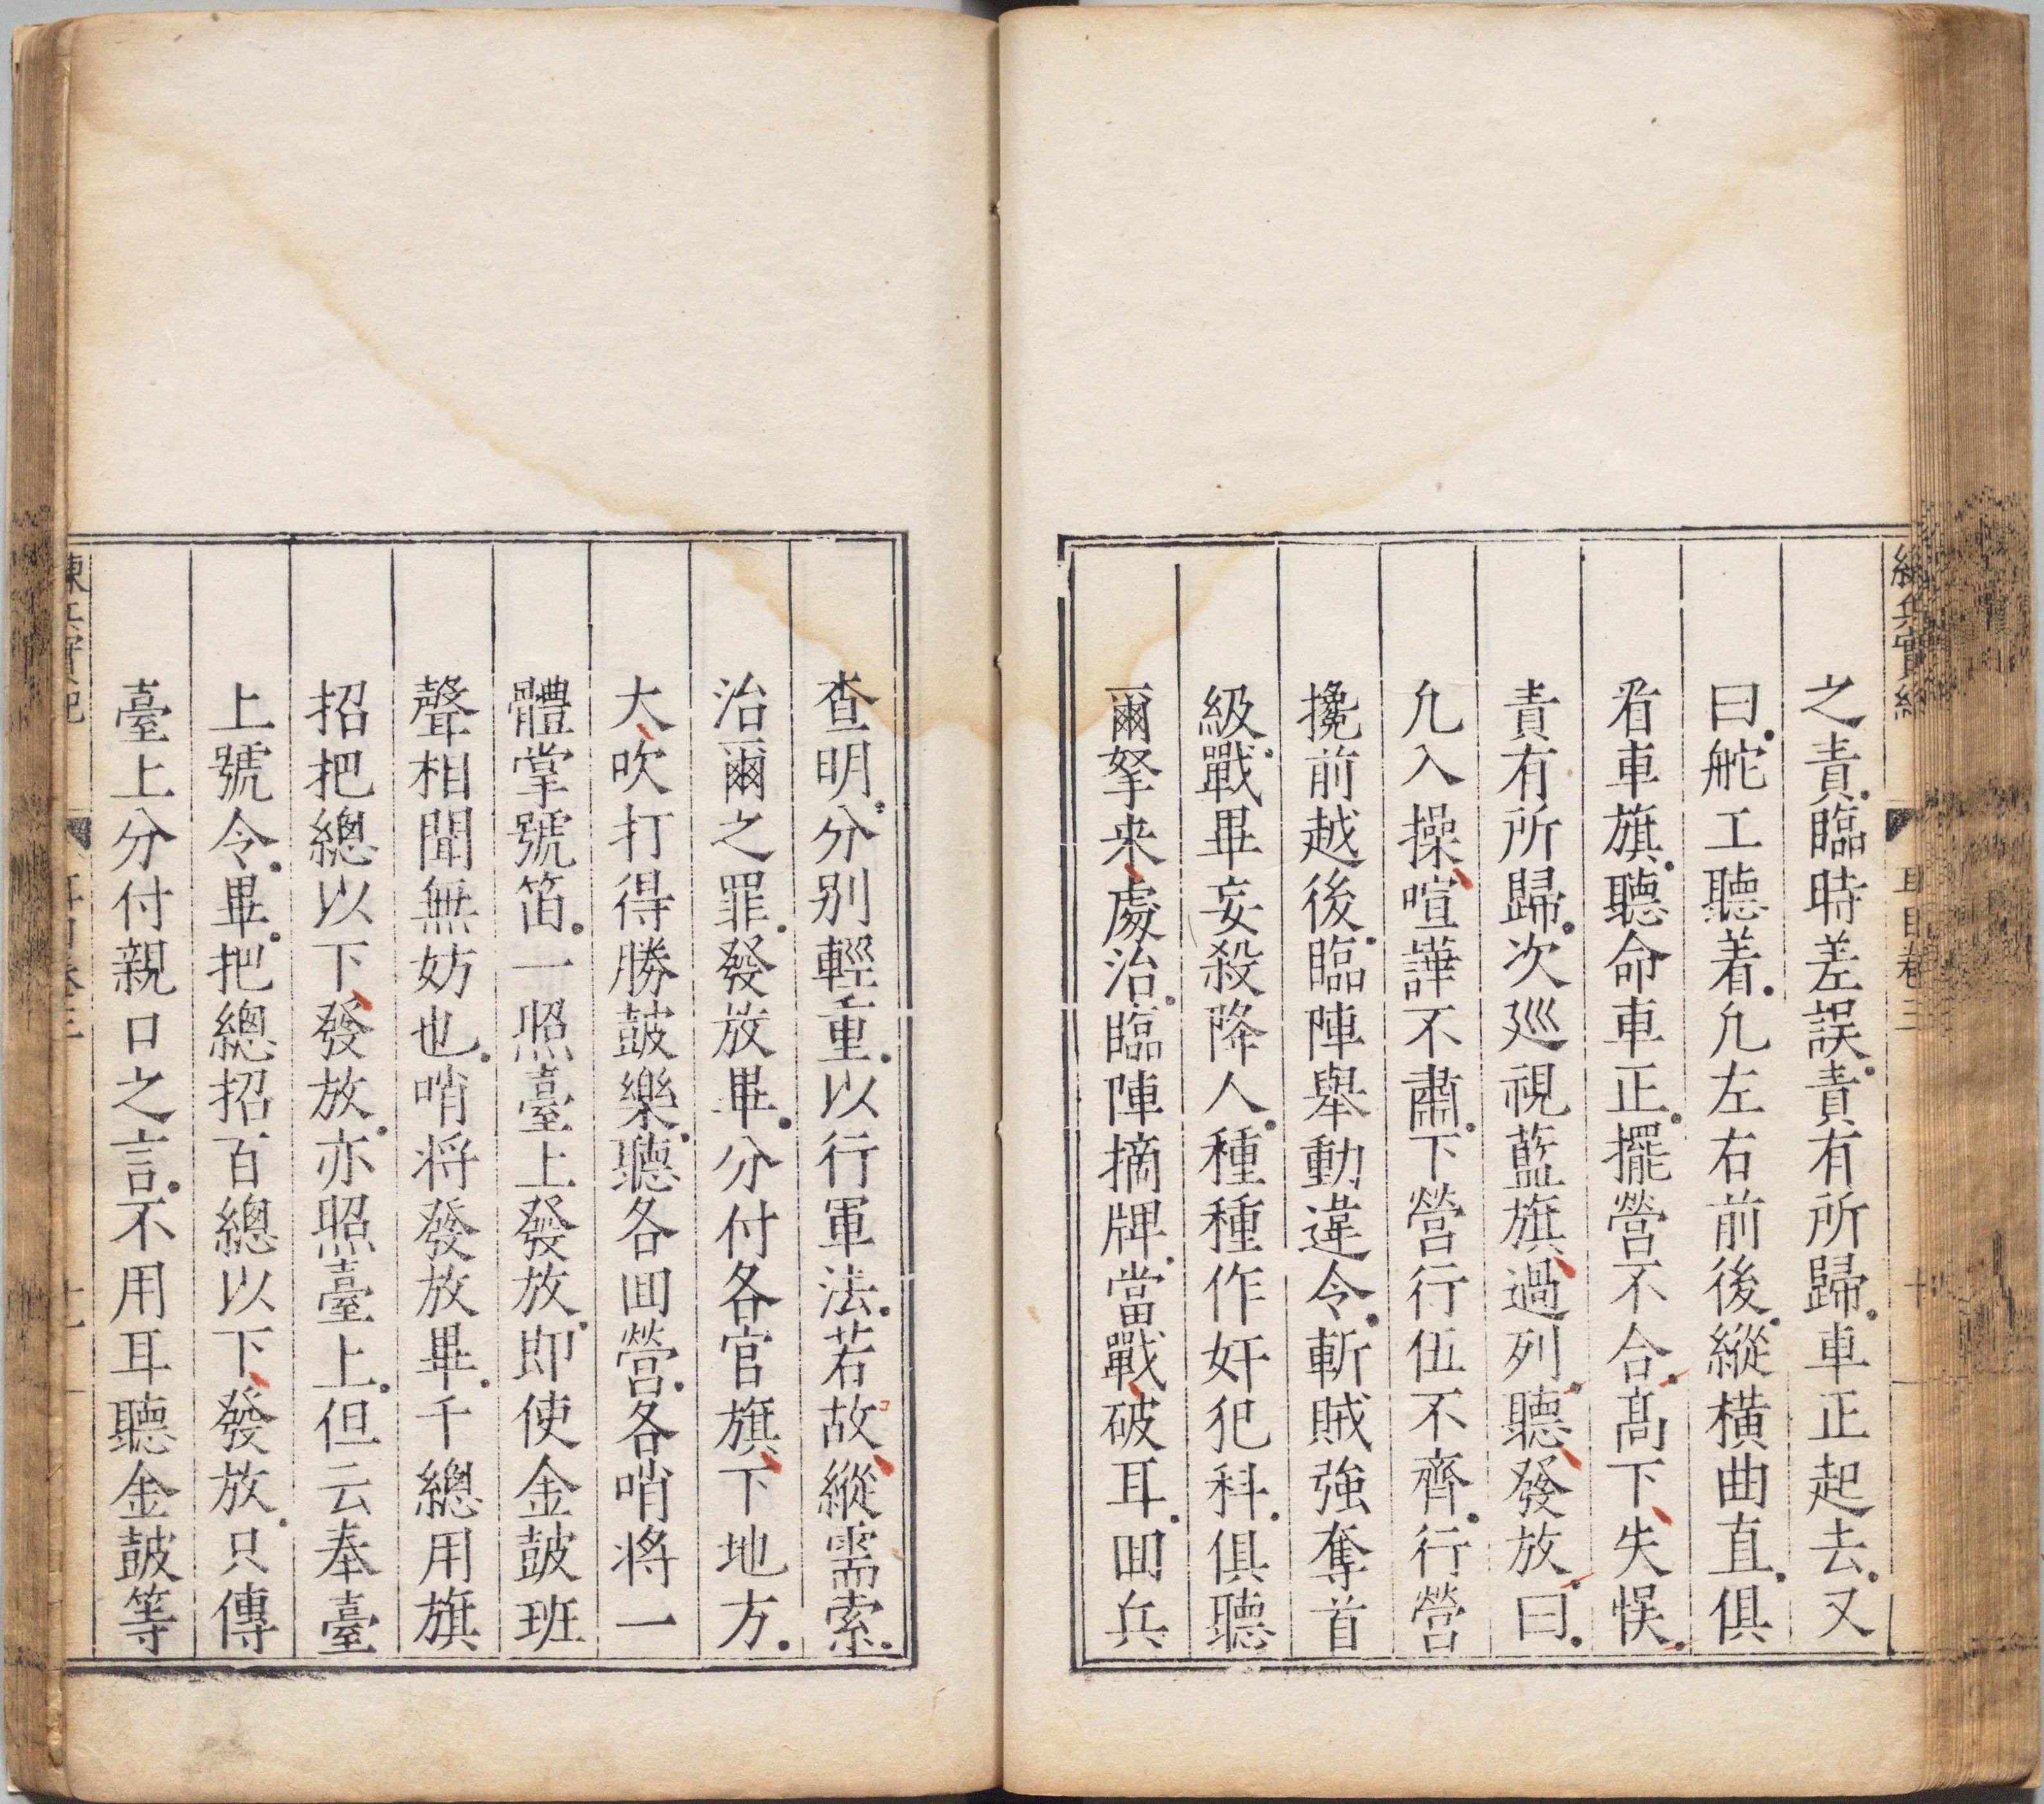 練兵實紀
耳目卷三
十
之責臨時差誤責有所歸車正起去又
曰舵工聽着凢左右前後縱橫曲直俱
看車旗聽命車正擺營不合高下失悞
責有所歸次廵視藍旗過列聽發放曰
凢入操喧譁不肅下營行伍不齊行營
攙前越後臨陣舉動違令斬賊強奪首
級戰畢妄殺降人種種作奸犯科俱聽
爾拏来處治臨陣摘牌當戰破耳囬兵
查明分别輕重以行軍法若故縱需索
治爾之罪發放畢分付各官旗下地方
大吹打得勝鼓樂聽各囬營各哨将一
體掌號笛一照臺上發放即使金鼓班
聲相聞無妨也哨将發放畢千總用旗
招把總以下發放亦照臺上但云奉臺
上號令畢把總招百總以下發放只傳
臺上分付親口之言不用耳聽金鼓等
練兵實紀
耳目卷三
十一